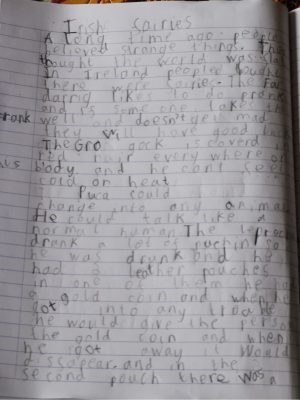 Irish fairies
A long time ago people
believed strange things. They
thought the world was
in Ireland people thought
there were fairies. The
likes to do prank
prank well. If some one takes it
well and doesn't get mad
they will have good luck
The Gro gock is coverd
red hair every where on
his body and he cant feel
cold or heat.
Puca could
change into any animal
He could talk like a
normal human The
drank a lot of puchin so
he was drunk and he
had 2 leather pouches
in one of them he
a gold coin and when he
got into any trouble
he would give the person
the gold coin and when
he got away it would
dissapear. and in the
second pouch there was a